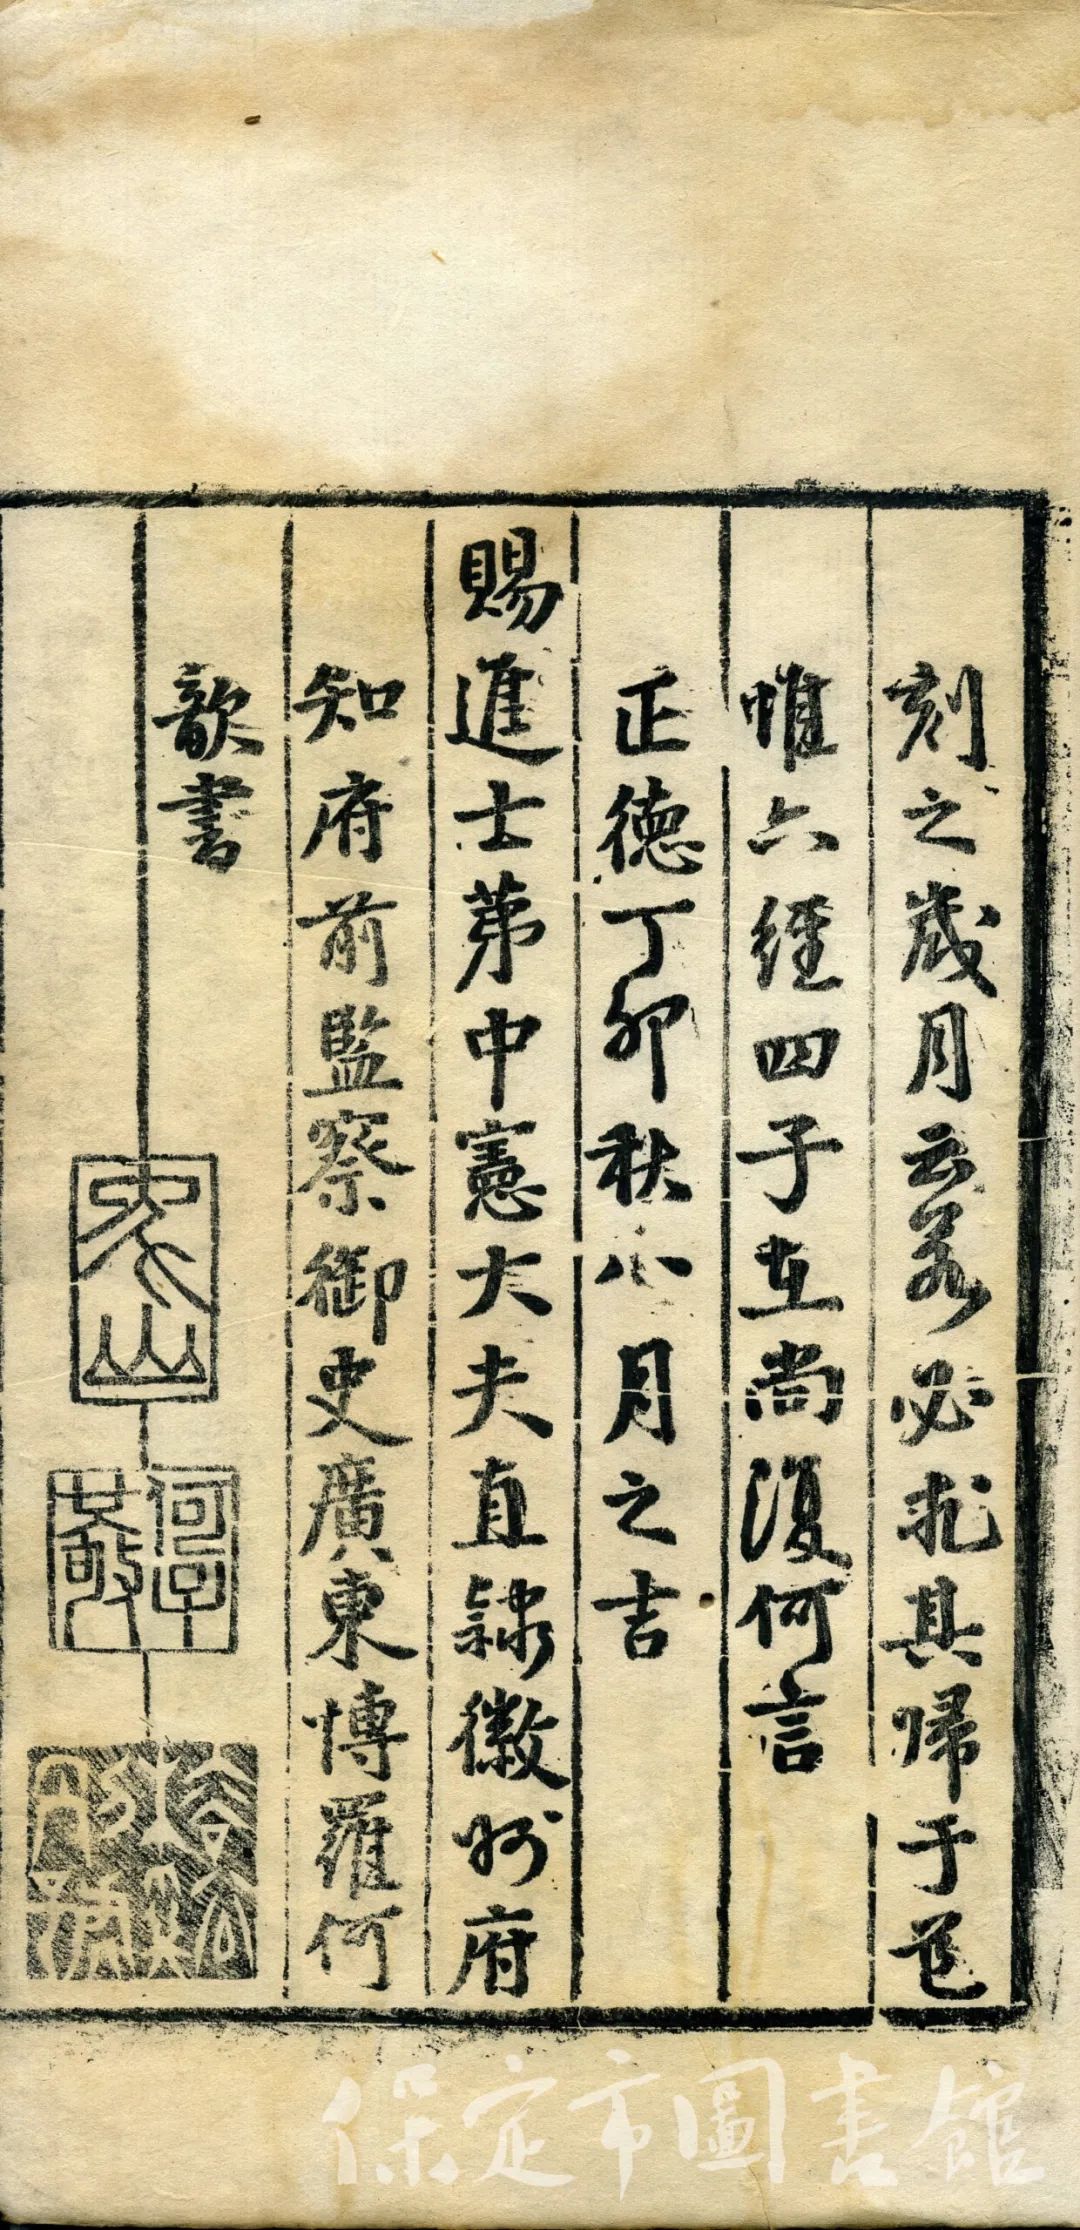 刻之歲月云若必求其歸于
惟六經四子在尚復何言
正德丁卯秋八月之吉
賜進士第中憲大夫直隸徽州府
知府前監察御史廣東博羅何
歆書
保定市圖書館